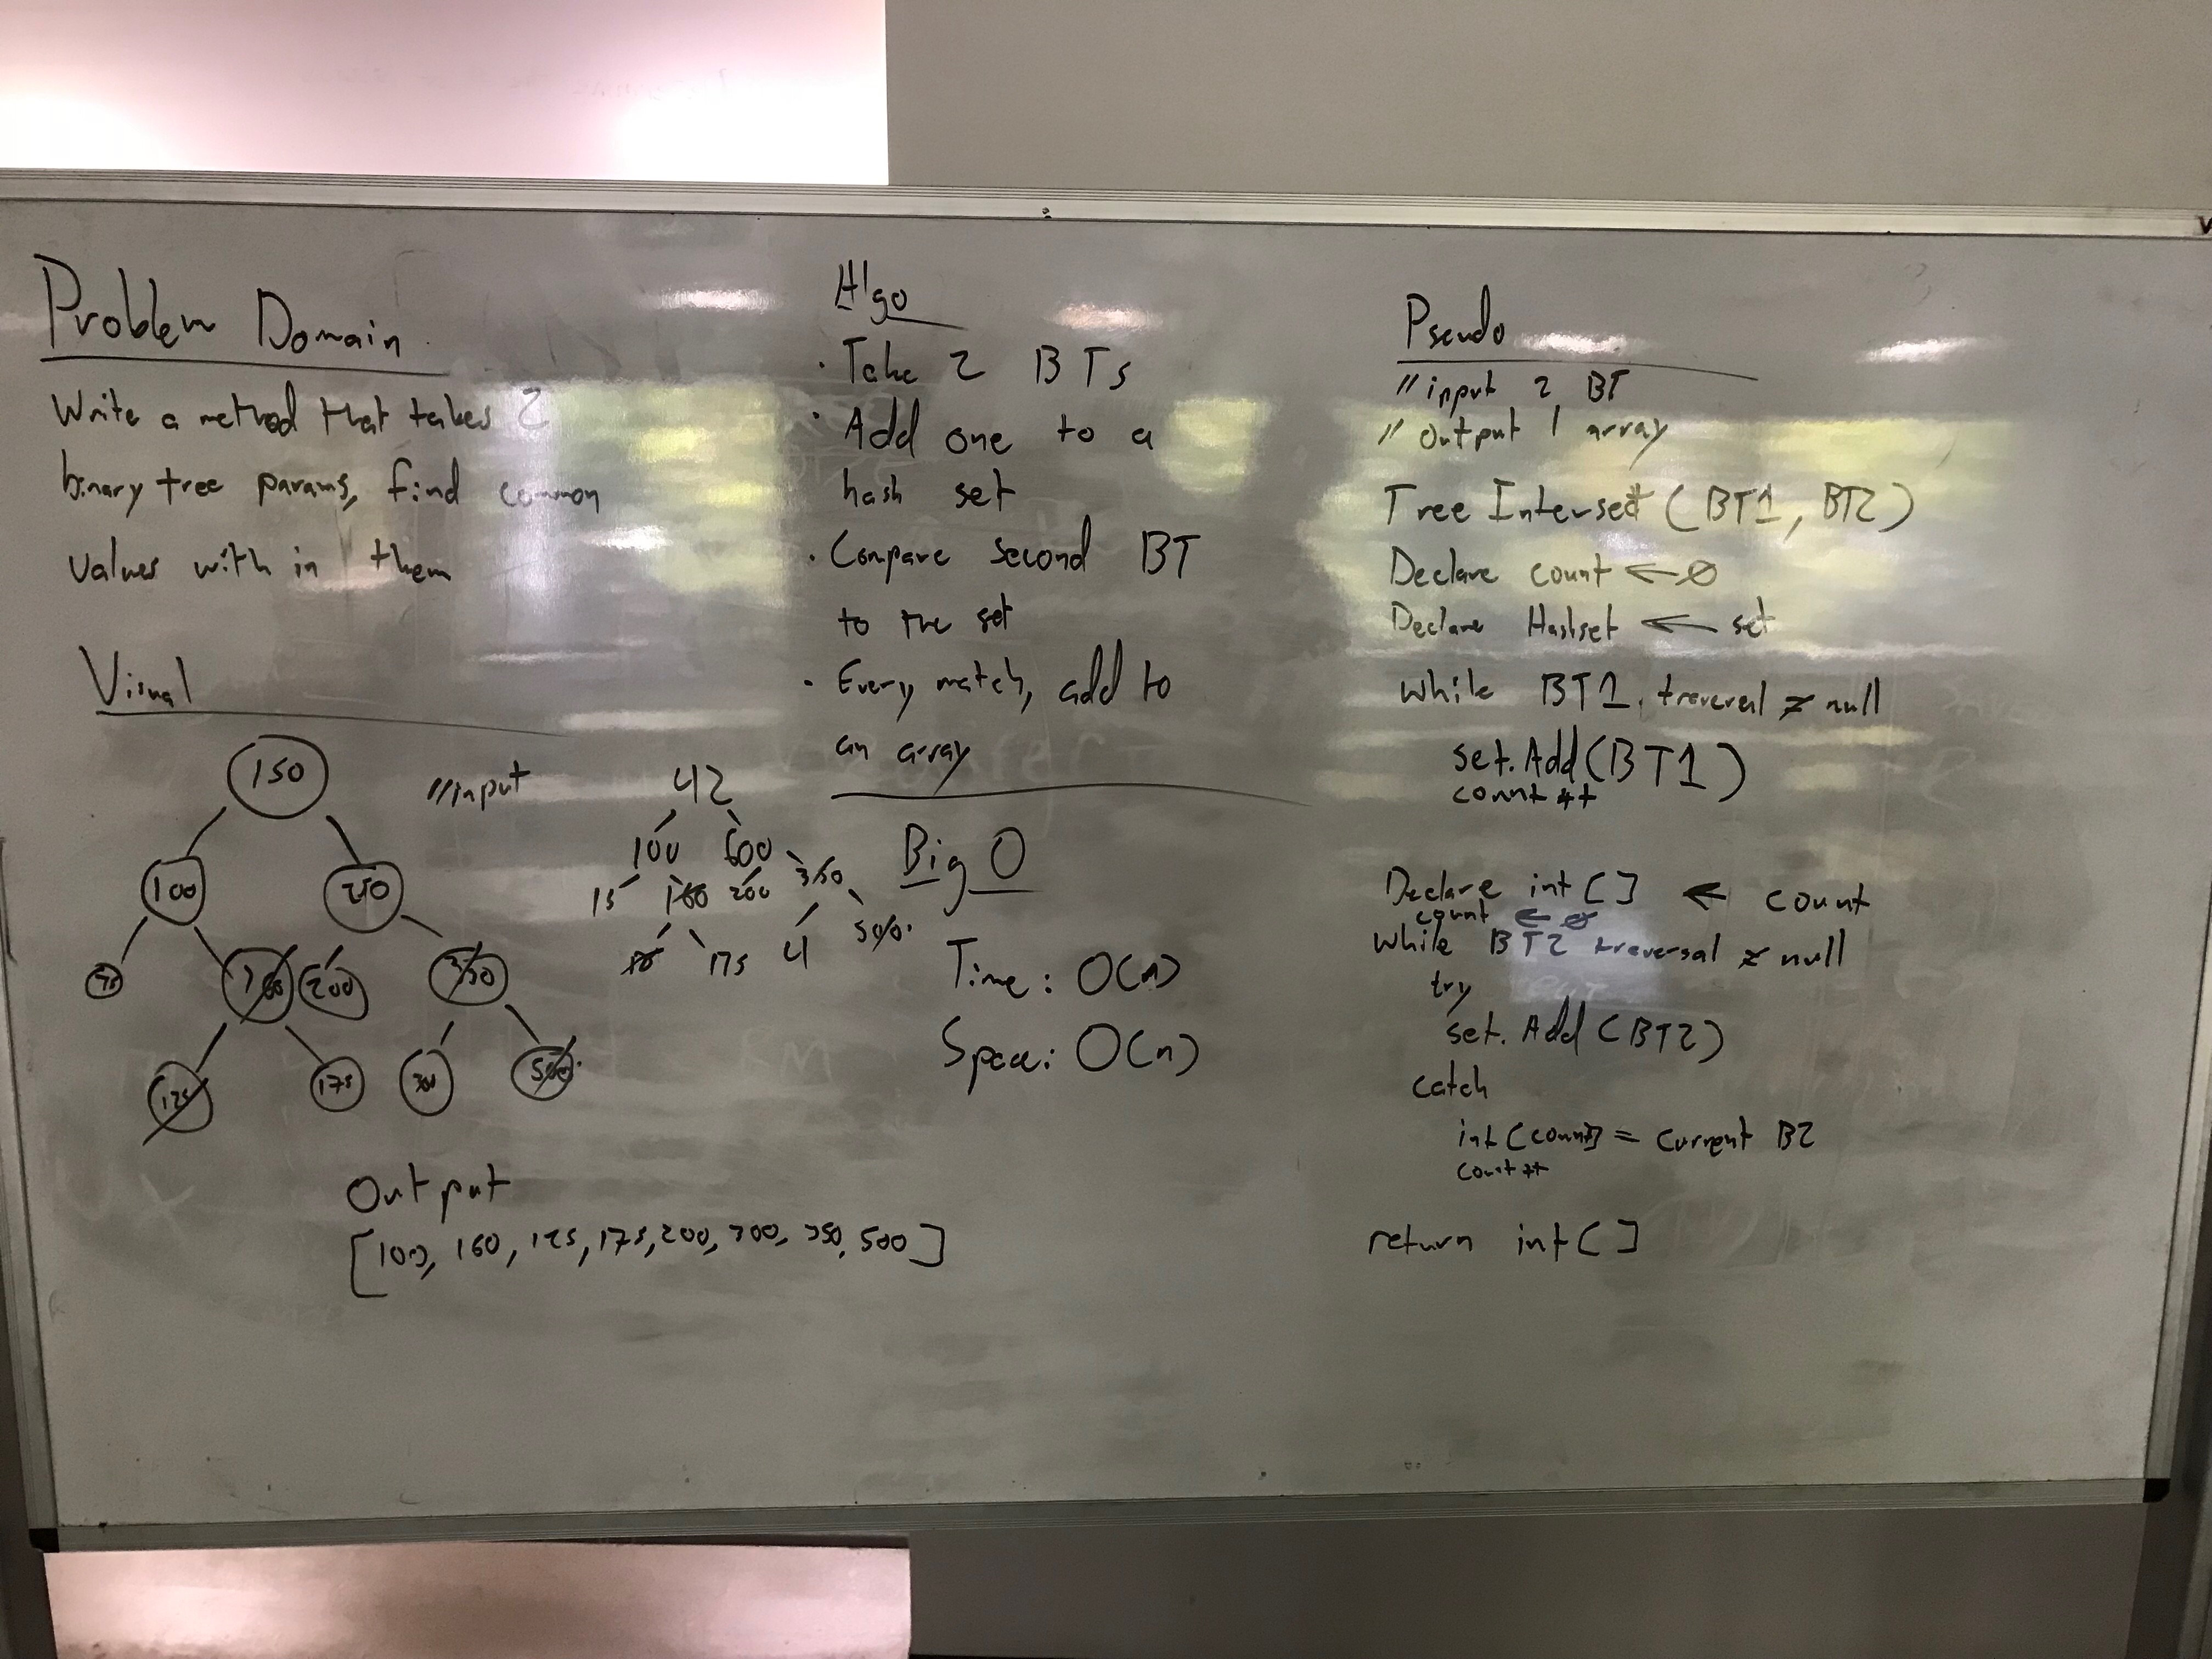 Problem Domain
Write a method that takes 2
binary tree params, find common
values with in them
Visual
150
//input
100
250
160
200
350
125
175
300
500
42
100
600
15
160
200
350
175
4
500
Output
[100, 160, 125, 175, 200, 300, 350, 500]
Algo
· Take 2 BTs
· Add one to a
hash set
· Compare second BT
to the set
· Every match, add to
an array
Big O
Time: O(n)
Space: O(n)
Pseudo
// input 2 BT
// output 1 array
Tree Intersect (BT1, BT2)
Declare count ← 0
Declare Hashset ← set
while BT1. traversal ≠ null
set.Add(BT1)
count ++
Declare int [] ← count
count ← 0
while BT2 traversal ≠ null
try
set. Add (BT2)
catch
int [count] = current B2
count ++
return int []